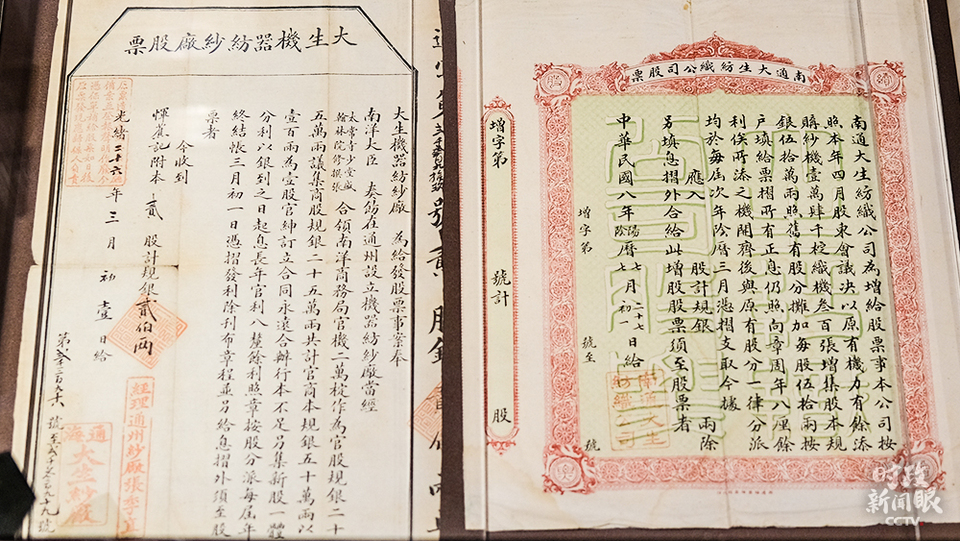 大生機器紡紗廠股票
大生機器紡紗廠 為給發股票事案奉
南洋大臣 奏飭在通州設立機器紡紗廠當經
太常寺少堂盛
翰林院修撰張
合領南洋商務局官機二萬椗作為官股規銀二十
五萬兩議集商股規銀二十五萬兩共計官商本規銀五十萬兩以
壹百兩為壹股官紳訂立合同永遠合辦行本不足另集新股一體
分利以銀到之日起息長年官利八釐餘利照章按股分派每屆年
終結帳三月初一日憑摺發利除刊布章程並另給息摺外須至股
票者
今收到
惲莘記附本 貳 股計規銀貳伯兩
光緒二十六年三月 初 壹 日給
經理通州紗廠張季直
通海
大生紗廠
南通大生紡織公司股票
南通大生紡織公司為增給股票事本公司按
照本年四月股東會議決以原有機力有餘添
購紗機壹萬肆千椗織機叁百張增集股本規
銀伍拾萬兩照舊有股分攤加每股伍拾兩按
戶填給票摺所有正息仍照向章周年八厘餘
利俟所添之機開齊後與原有股分一律分派
均於每屆次年陰曆三月憑摺支取今據
應入 股計規銀 兩除
另填息摺外合給此增股股票須至股票者
中華民國八年
陽
陰
曆
七月二十七
七月初一
日給
增字第 號至 號
南通大生
紡織公司
增字第 號計 股
时政
新闻眼
CCTV